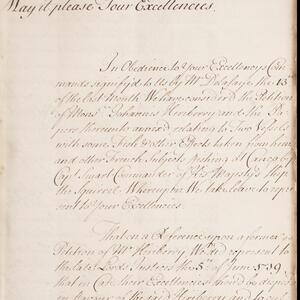 May it please Your Excellencies.
In Obedience to Your Excellencys Com
mands signify'd to Us by Mr Delafaye the 15th
of the last Month We have consider'd the Petition
of Mons. Johannis Heriberry and the Pa
pers thereunto annex'd relating to Two Vessels
with some Fish & other Effects taken from him
and other French Subjects fishing at Canco by
Capt. Smart Commander of His Majestys Ship
the Squirrel Whereupon We take leave to repre
sent to Your Excellencies.
That on a Reference upon a former
Petition of Mr Heriberry We did represent to
the late Lords Justices the 5th of June
that in Case their Excellencies should be
in favour of the said Heriberry and